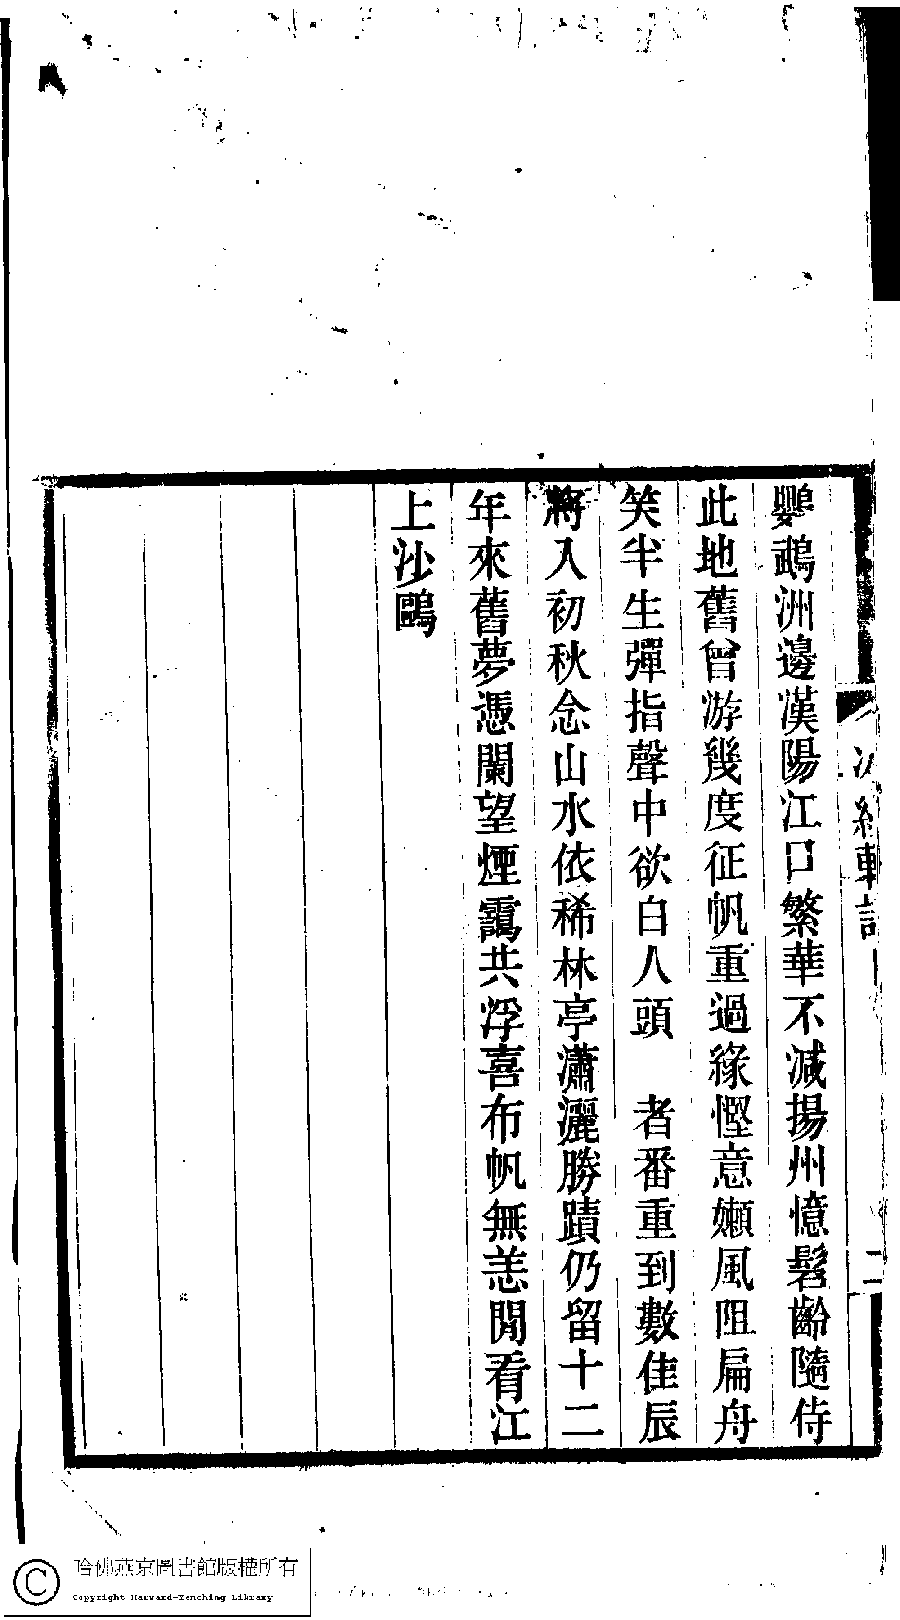 鸚鵡洲邊漢陽江口繁華不減揚州憶髫齡隨侍
此地舊曾游幾度征帆重過緣慳意嬾風阻扁舟
笑半生彈指聲中欲白人頭　者番重到數佳辰
將入初秋念山水依稀林亭瀟灑勝蹟仍留十二
年來舊夢憑闌望煙靄共浮喜布帆無恙閒看江
上沙鷗
二
哈佛燕京圖書館版權所有
Copyright Harvard-Yenching Library